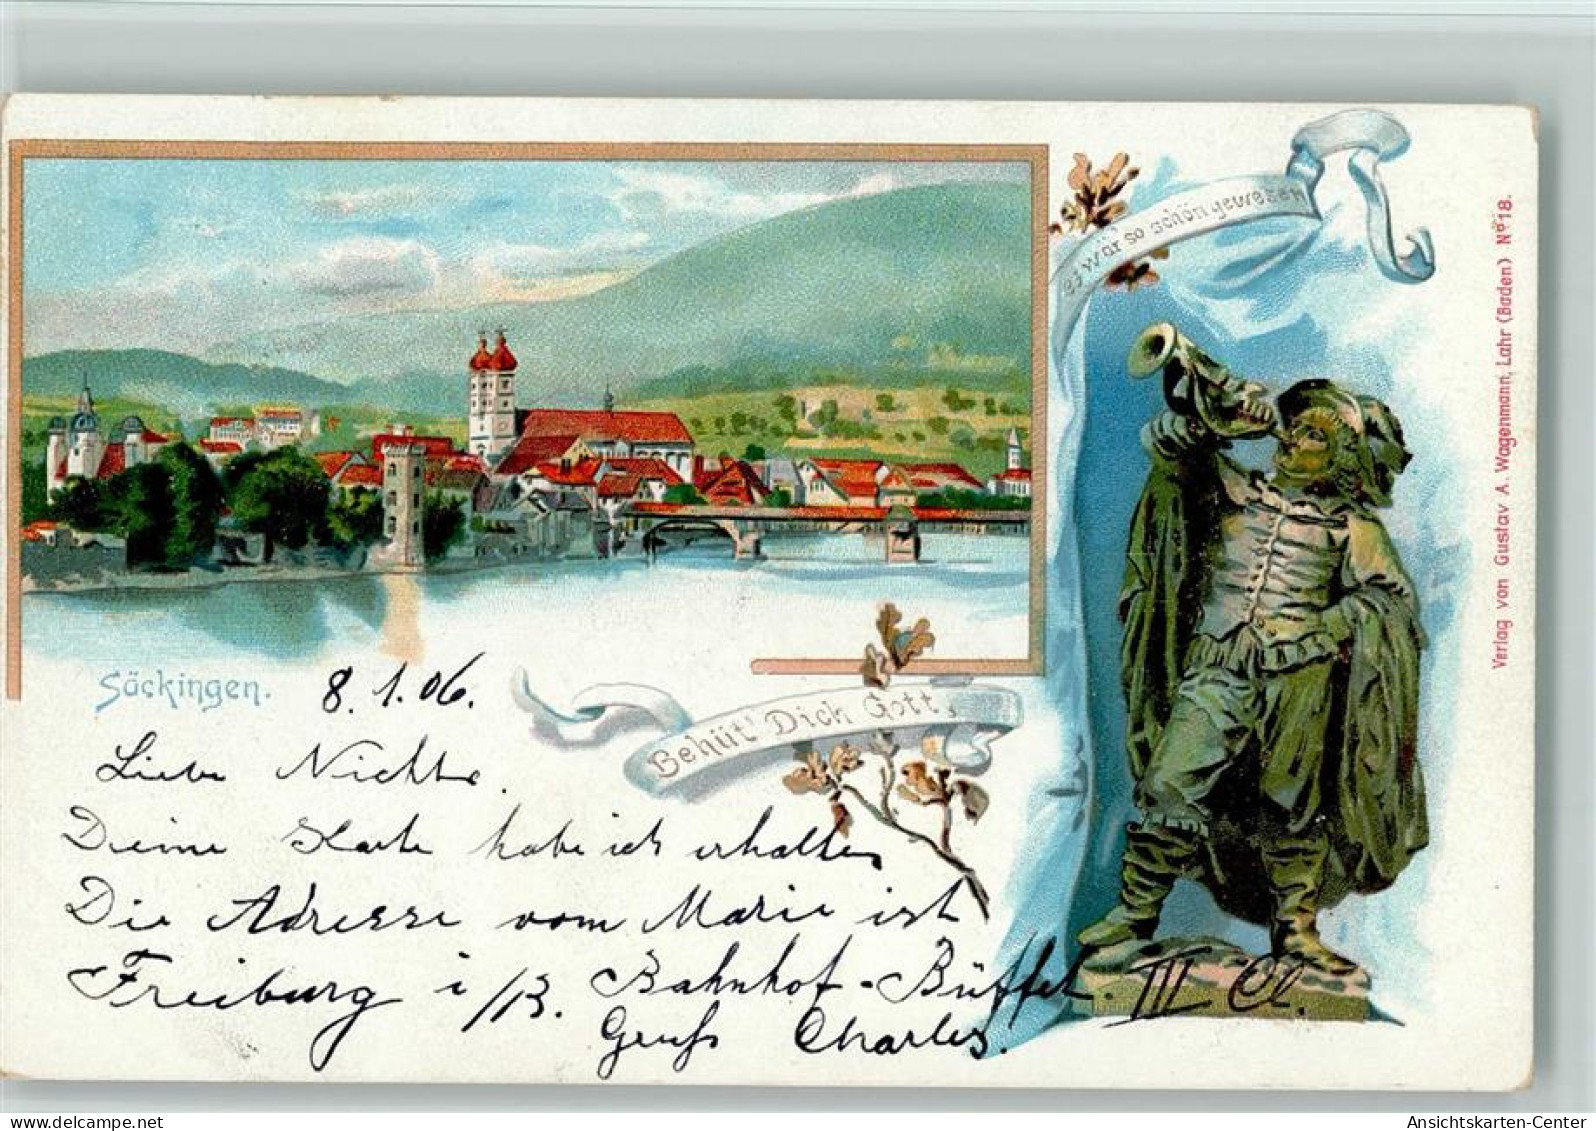 es wär so schön gewesen
Verlag von Gustav A. Wagenmann, Lahr (Baden) Nº 18.
Säckingen.
8. 1. 06.
Behüt' Dich Gott,
Liebe Nichte.
Deine Karte habe ich erhalten
Die Adresse vom Marie ist
Freiburg i/B. Bahnhof-Büffet. III Cl.
Gruß Charles.
123ansichtskarten.de
Ansichtskarten-Center